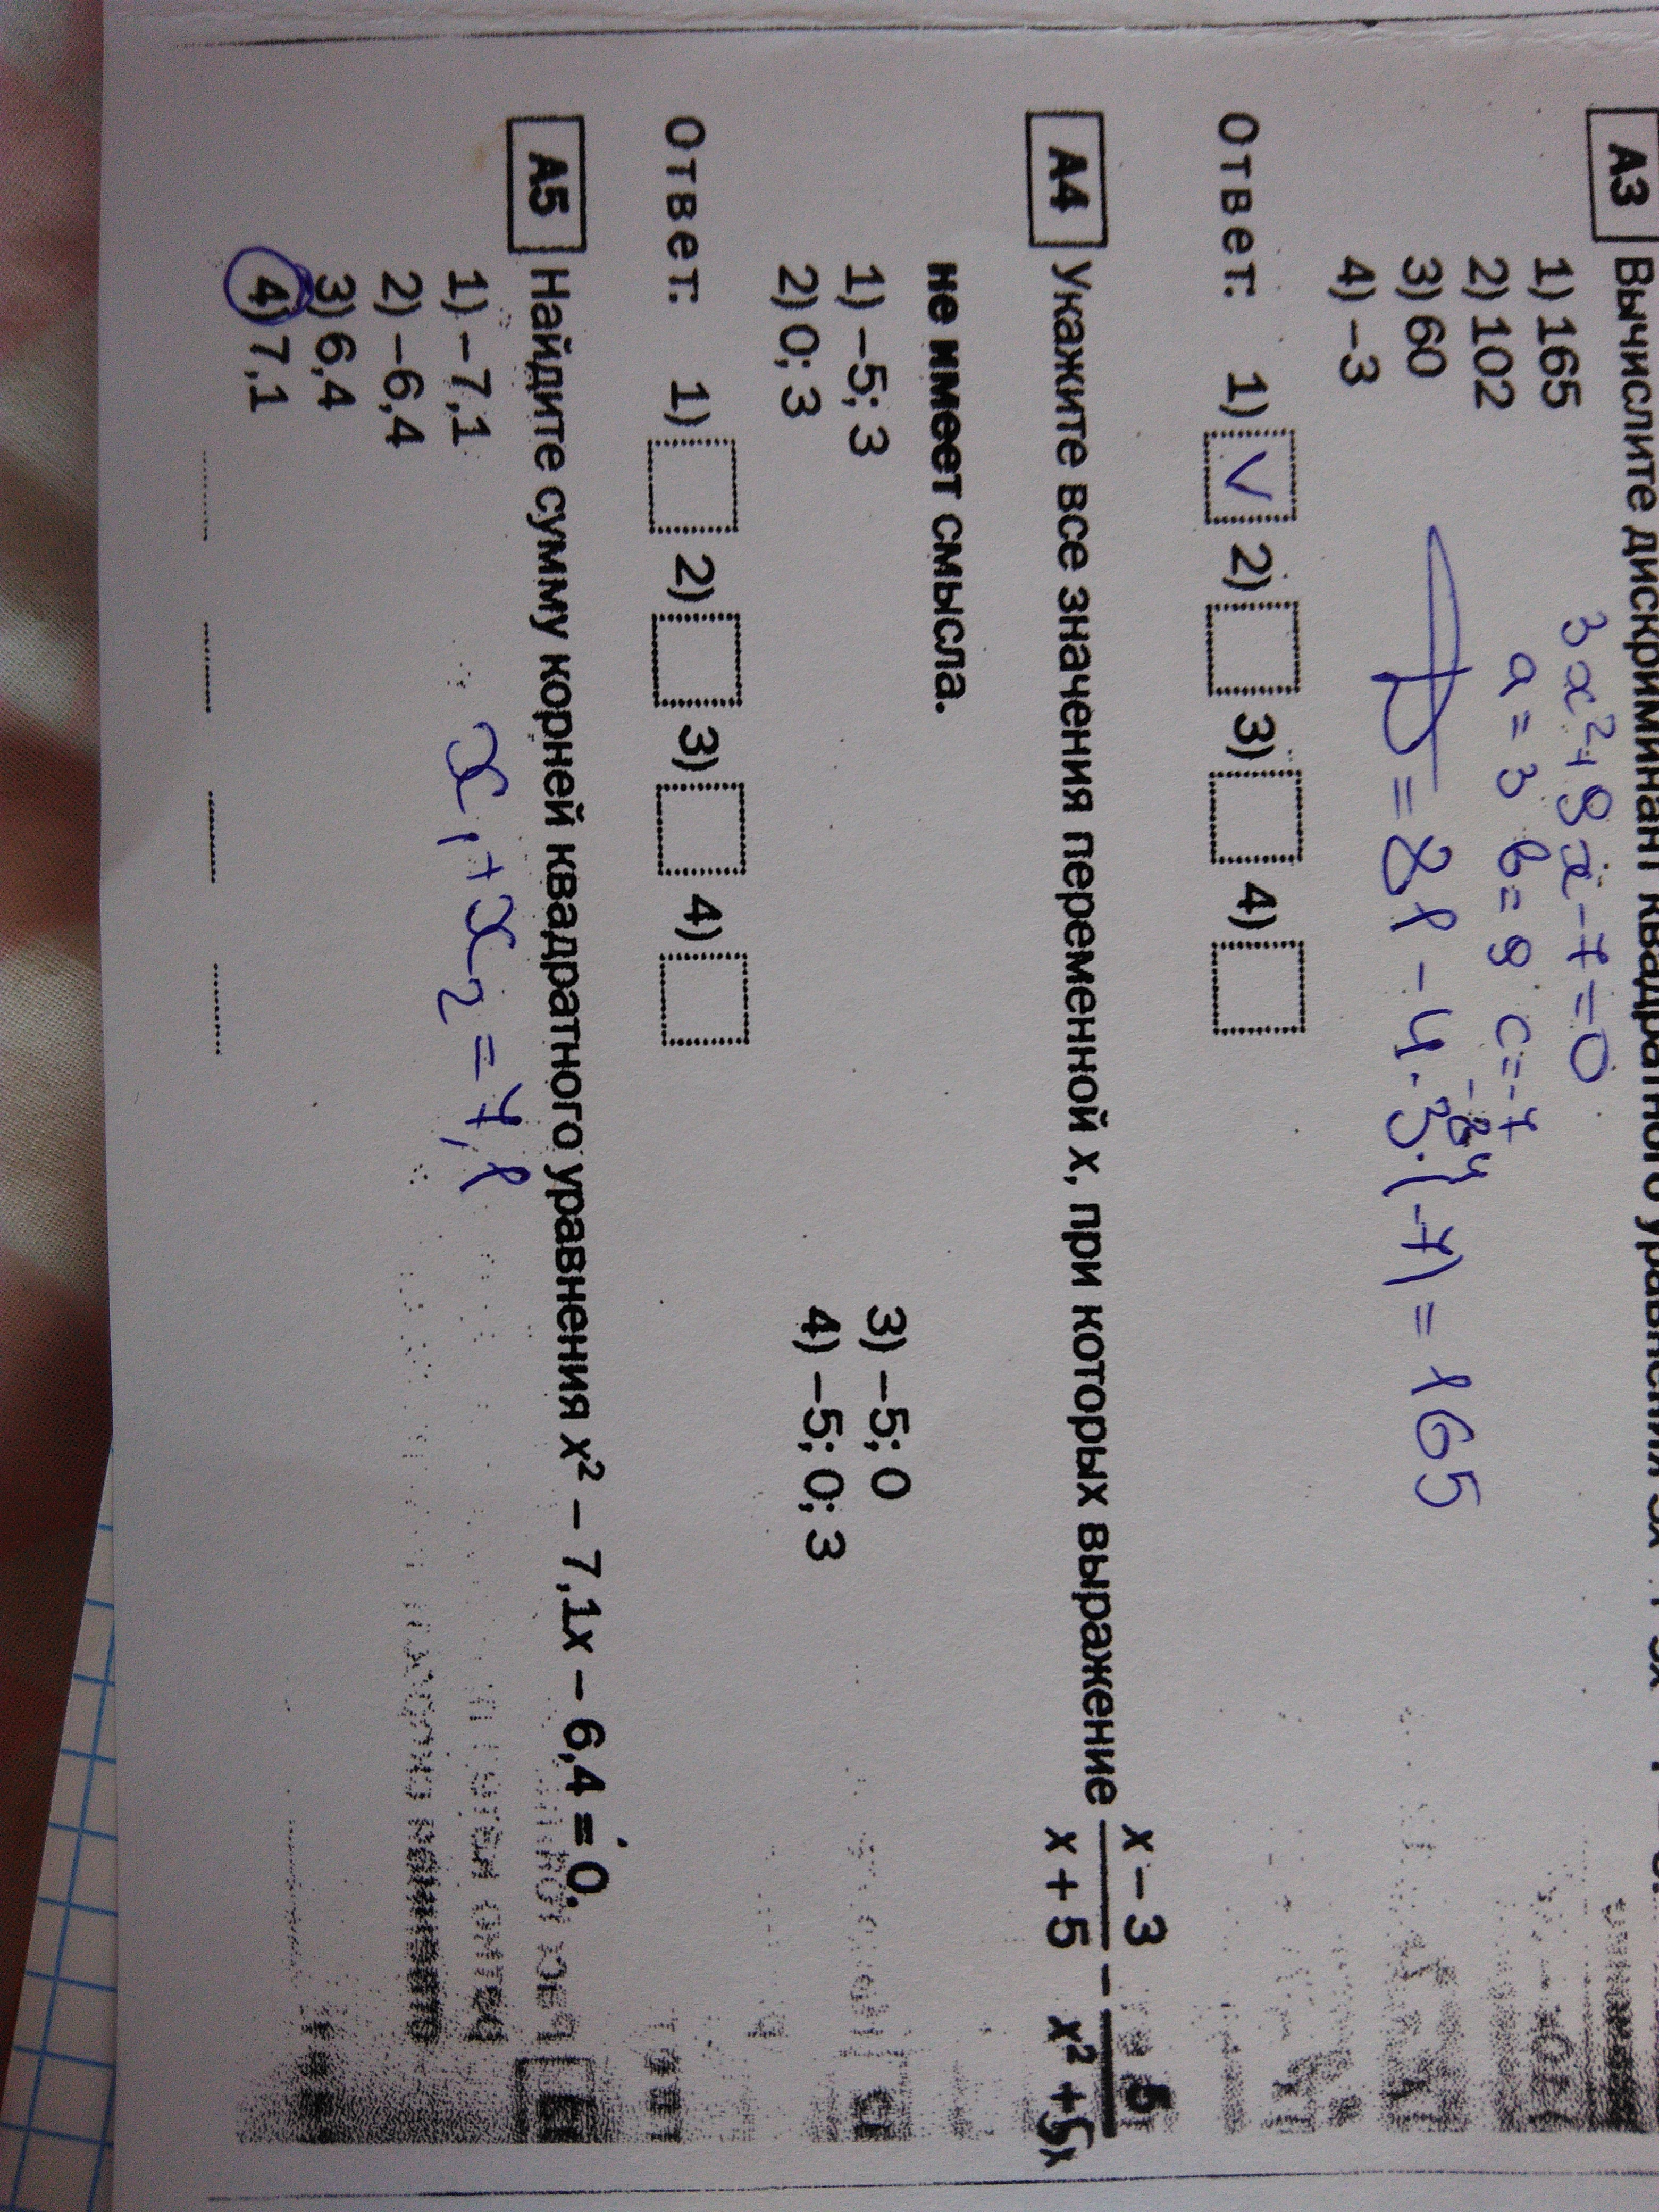 А3 Вычислите дискриминант квадратного уравнения
1) 165
2) 102
3) 60
4) –3
3x²+9x–7=0
a=3 b=9 c=–7
–84
D=81–4·3·(–7)=165
Ответ: 1) V 2) 3) 4)
А4 Укажите все значения переменной x, при которых выражение x – 3 / x + 5 – 5 / x² + 5x
не имеет смысла.
1) –5; 3 3) –5; 0
2) 0; 3 4) –5; 0; 3
Ответ: 1) 2) 3) 4)
А5 Найдите сумму корней квадратного уравнения x² – 7,1x – 6,4 = 0.
1) –7,1
2) –6,4
3) 6,4
4) 7,1
x₁+x₂=7,1